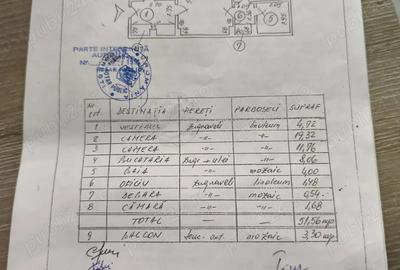 1
6
5
7
PARTE INTEGRANTĂ
Nr.
ROMÂNIA
Nr
crt DESTINAȚIA PEREȚI PARDOSELI SUPRAF
1 VESTIBUL zugraveli linoleum 4,92
2 CAMERA -"- -"- 19,32
3 CAMERA -"- -"- 11,96
4 BUCATARIA zugr+ulei -"- 8,06
5 BAIA -"- mozaic 4,00
6 OFICIU zugraveli linoleum 1,48
7 DEBARA -"- mozaic 0,54
8 CĂMARĂ -"- -"- 1,68
TOTAL — — 51,56 mp
9 BALCON mozaic 3,30 mp